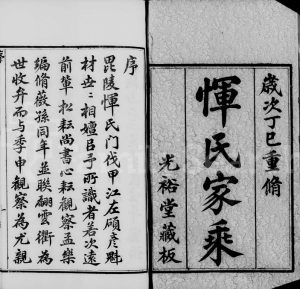 歲次丁巳重脩
惲氏家乘
光裕堂藏板
序
毘陵惲氏門伐甲江左碩彦魁
材世世相嬗吕予所識者若次遠
前輩松耘尚書心耘觀察孟樂
編脩薇孫同年並聯翩雲衢為
世收弁而与季申觀察為尤親